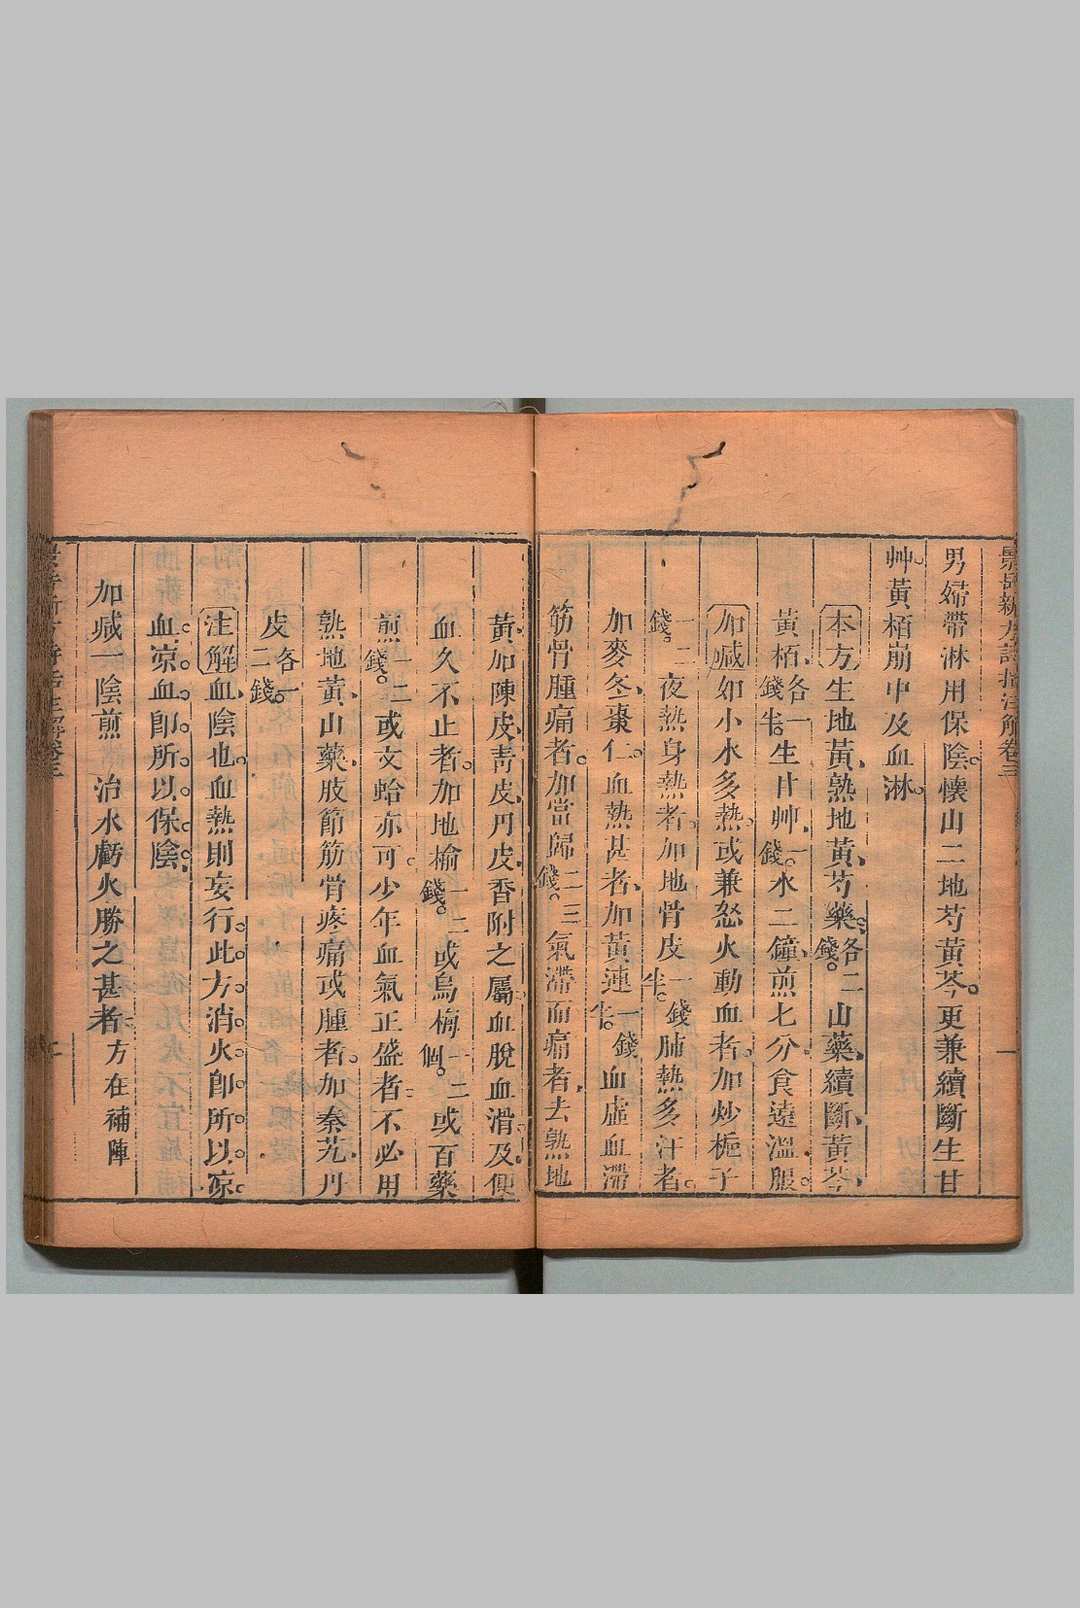 景岳新方詩括注解卷三 一
男婦帶淋用保陰。懷山二地芍黃芩。更兼續斷生甘
艸。黃栢崩中及血淋。
本方生地黃、熟地黃、芍藥。各二錢。山藥、續斷、黃芩、
黃栢、各一錢半。生甘艸、一錢。水二鐘、煎七分。食遠溫服。
加減如小水多熱。或兼怒火動血者。加炒梔子
一二錢。夜熱身熱者。加地骨皮一錢半。肺熱多汗者。
加麥冬、棗仁。血熱甚者、加黃連一錢半。血虛血滯
筋骨腫痛者。加當歸二三錢。氣滯而痛者、去熟地
黃、加陳皮、青皮、丹皮、香附之屬。血脫血滑及便
血久不止者。加地榆一二錢。或烏梅一二個。或百藥
煎一二錢。或文蛤亦可。少年血氣正盛者、不必用
熟地黃、山藥、肢節筋骨疼痛或腫者。加秦艽、丹
皮各一二錢。
注解血、陰也。血熱則妄行。此方消火。卽所以凉
血。凉血卽所以保陰。
加減一陰煎 治水虧火勝之甚者方在補陣